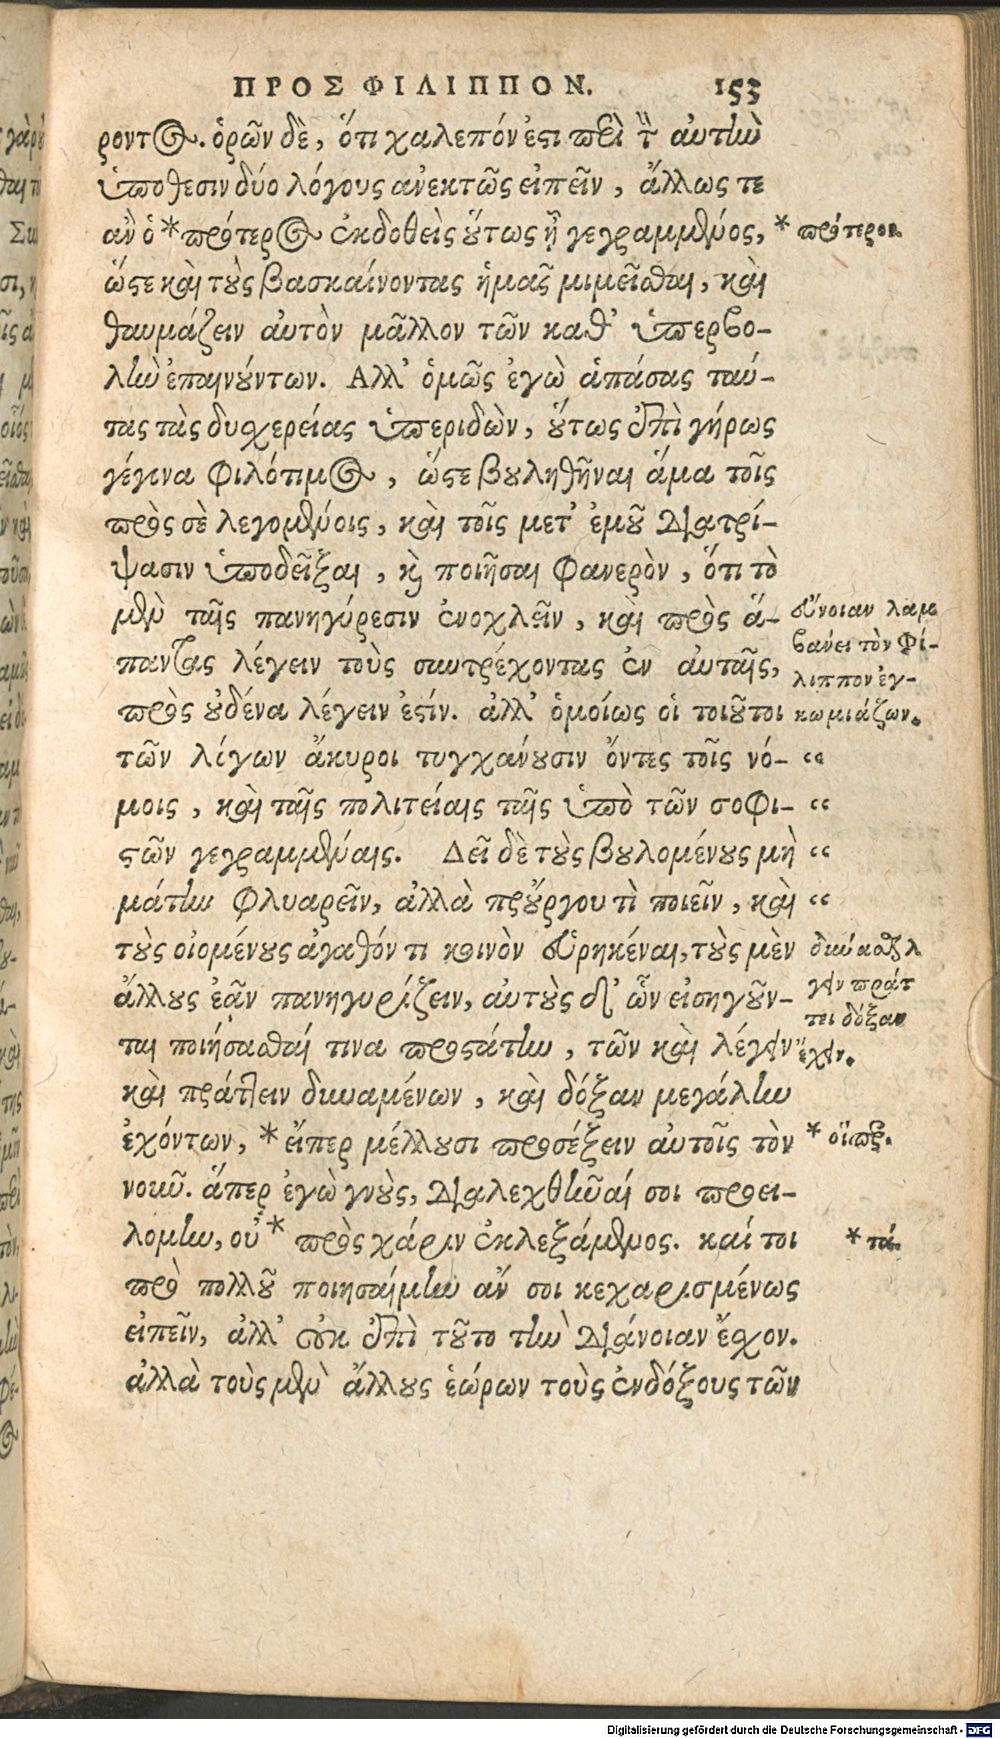 ΠΡΟΣ ΦΙΛΙΠΠΟΝ. 153
ροντος. ὁρῶν δὲ, ὅτι χαλεπόν ἐστι περὶ τὴν αὐτὴν
ὑπόθεσιν δύο λόγους ἀνεκτῶς εἰπεῖν, ἄλλως τε
ἂν ὁ * πρότερος ἐκδοθεὶς οὕτως ᾖ γεγραμμένος, * πρότερον.
ὥστε καὶ τοὺς βασκαίνοντας ἡμᾶς μιμεῖσθαι, καὶ
θαυμάζειν αὐτὸν μᾶλλον τῶν καθ’ ὑπερβο-
λὴν ἐπαινούντων. Αλλ’ ὁμῶς ἐγὼ ἁπάσας ταύ-
τας τὰς δυχερείας ὑπεριδὼν, οὕτως ἐπὶ γήρως
γέγονα φιλότιμος, ὥστε βουληθῆναι ἅμα τοῖς
πρὸς σὲ λεγομένοις, καὶ τοῖς μετ’ ἐμοῦ διατρί-
ψασιν ὑποδεῖξαι, καὶ ποιῆσαι φανερὸν, ὅτι τὸ
μὲν ταῖς πανηγύρεσιν ἐνοχλεῖν, καὶ πρὸς ἅ-
παντας λέγειν τοὺς συντρέχοντας ἐν αὐταῖς,
πρὸς οὐδένα λέγειν ἐστίν. ἀλλ’ ὁμοίως οἱ τοιοῦτοι
εὔνοιαν λαμ
βάνει τὸν Φί-
λιππον ἐγ-
κωμιάζων.
τῶν λόγων ἄκυροι τυγχάνουσιν ὄντες τοῖς νό- “
μοις, καὶ ταῖς πολιτείαις ταῖς ὑπὸ τῶν σοφι- “
στῶν γεγραμμέναις. Δεῖ δὲ τοὺς βουλομένους μὴ “
μάτην φλυαρεῖν, ἀλλὰ προὔργου τὶ ποιεῖν, καὶ “
τοὺς οἰομένους ἀγαθόν τι κοινὸν εὑρηκέναι, τοὺς μὲν
ἄλλους ἐᾶν πανηγυρίζειν, αὐτοὺς δι’ ὧν εἰσηγοῦν-
ται ποιήσασθαί τινα προστάτην, τῶν καὶ λέγειν
πράτ
τει δόξαν
ἔχειν.
καὶ πράττειν δυναμένων, καὶ δόξαν μεγάλην
ἐχόντων, * εἴπερ μέλλουσι προσέξειν αὐτοῖς τὸν * οἵπερ.
νοῦν. ἅπερ ἐγὼ γνοὺς, διαλεχθῆναί σοι προει-
λόμην, οὐ * πρὸς χάριν ἐκλεξάμενος. καί τοι * τά.
πρὸ πολλοῦ ποιησαίμην ἄν σοι κεχαρισμένως
εἰπεῖν, ἀλλ’ οὐκ ἐπὶ τοῦτο τὴν διάνοιαν ἔχον.
ἀλλὰ τοὺς μὲν ἄλλους ἑώρων τοὺς ἐνδόξους τῶν
Digitalisierung gefördert durch die Deutsche Forschungsgemeinschaft - DFG